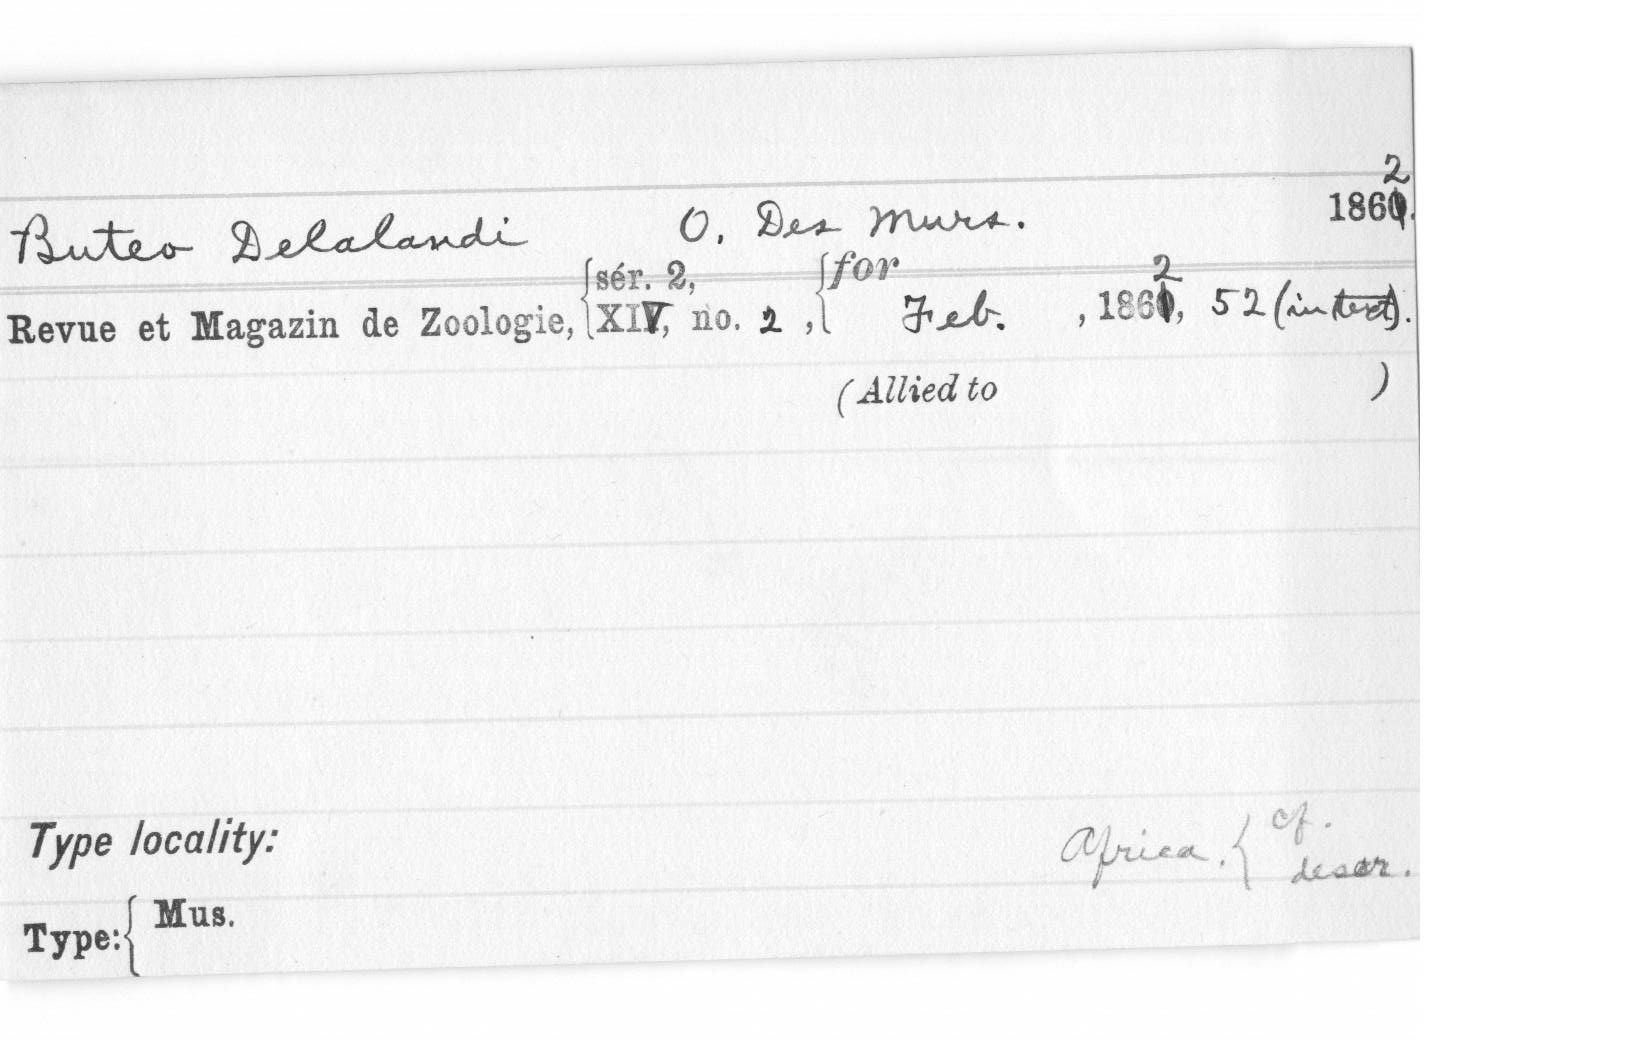 Buteo Delalandi O. Des Murs. 1862.
Revue et Magazin de Zoologie, {sér. 2, XIV, no. 2, {for Feb., 1862, 52 (in text).
(Allied to )
Type locality: Africa. {cf. descr.
Type: { Mus.